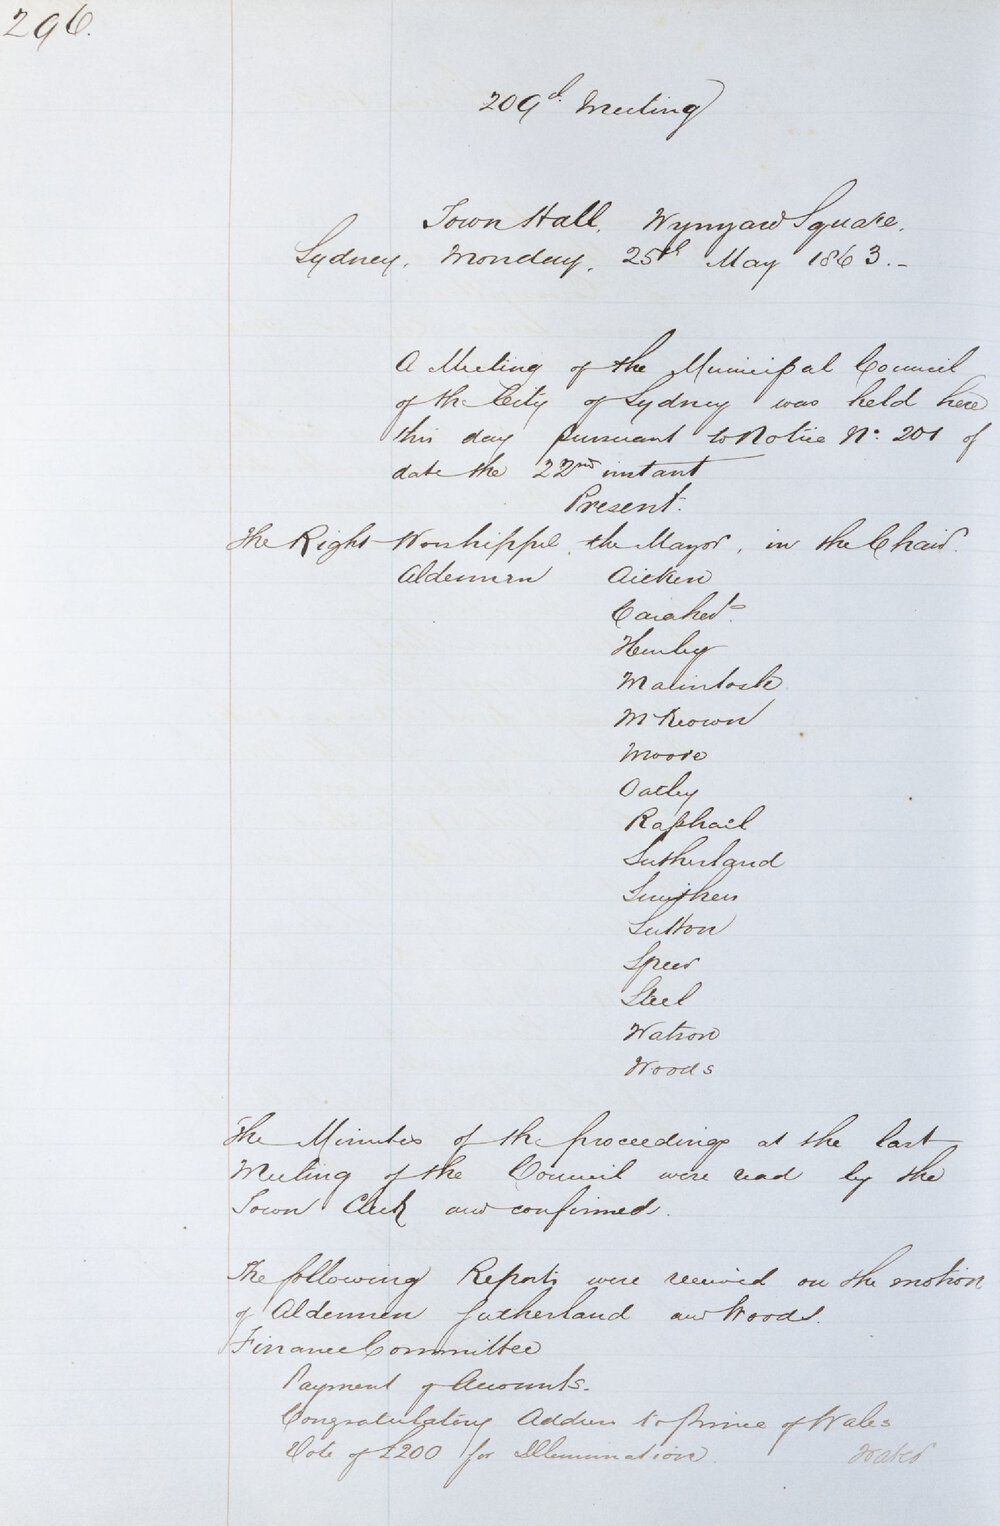 296.
209th Meeting
Town Hall, Wynyard Square,
Sydney, Monday, 25th May 1863.-
A Meeting of the Municipal Council
of the City of Sydney was held here
this day pursuant to Notice No. 201 of
date the 22nd instant
Present.
The Right Worshipful, the Mayor, in the Chair.
Aldermen Aicken
Caraher
Henley
Macintosh
McKeown
Moore
Oatley
Raphael
Sutherland
Smithers
Sutton
Speer
Steel
Watson
Woods
The Minutes of the proceedings at the last
Meeting of the Council were read by the
Town Clerk and confirmed.
The following Reports were received on the motion
of Aldermen Sutherland and Woods.
Finance Committee
Payment of Accounts.
Congratulatory Address to Prince of Wales
Vote of £200 for Illumination.
Water